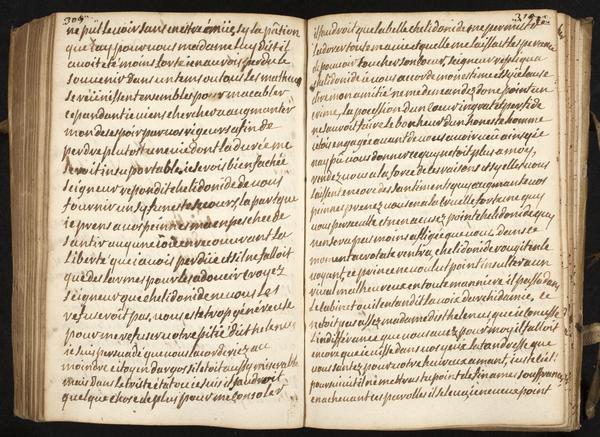 309
ne put le voir sans estre émüe, sy la pation
que j'ay pour vous madame luy dist il
avoit eté moins forte je n'aurois perdu le
souvenir dans un tems ou tous les malheurs
se reünissent ensembles pour m'acabler
cependant je viens chercher a augmenter
mon desespoir par vos rigeurs afin de
perdre plutost une vie dont la durée me
seroit insuportable, je serois bien fachée
seigneur repondit chelidonide de vous
fournir un sy funeste secours, la part que
je prens a vos peinnes m'a empeschee de
santir aucune joie en recouvrant la
liberté que j'avois perdüe et s'il ne falloit
que des larmes pour les adoucir croyez
seigneur que chelidonide ne vous les
refuseroit pas, vous este trop genereuse
pour me refuser votre pitié dist helenus
je suis persuadé que vous l'acorderiez au
moindre citoyen d'argos s'il etoit aussy miserable
mais dans le triste etat ou je suis il faudroit
quelque chose de plus pour me consoler
310
il faudroit que la belle chelidonide me permist de
l'adorer toute ma vie et qu'elle me laissast l'esperance
de pouvoir toucher son coeur, seigneur repliqua
chelidonide je vous acorde mon estime et sy je l'ause
dire mon amitié ne me demandez donc point un
crime, la possession d'un coeur ingrat et perfide
ne sauroit faire le bonheur d'un honeste homme
je l'ay engagé avant de vous avoir veü ainsy je
n'ay pü vous donner ce quy n'etoit plus a moy,
rendez vous a la force de ces raisons et sy elles vous
laissent encore des santiments quy augmantent vos
peinnes prenez vous en a la cruelle fortune quy
vous persecutte et n'en acusez point chelidonide quy
n'en sera pas moins affligée que vous, dans ce
moment acrotate rentra, chelidonide rougit en le
voyant, ce prince ne voulut point insulter a un
rival malheureux en toute manniere il passa dans
le cabinet ou il entandit la voix d'archidamie, ce
n'etoit pas assez madame dist helenus que je conusse
l'indifférance que vous avez pour moy, il falloit
encore que je visse dans vos yeux la tandresse que
vous santez pour votre heureux amant, juste ciel
poursuivit il ne mettras tu point de fin a mes souffrances
en achevant ces parolles il se leva, je ne veux point